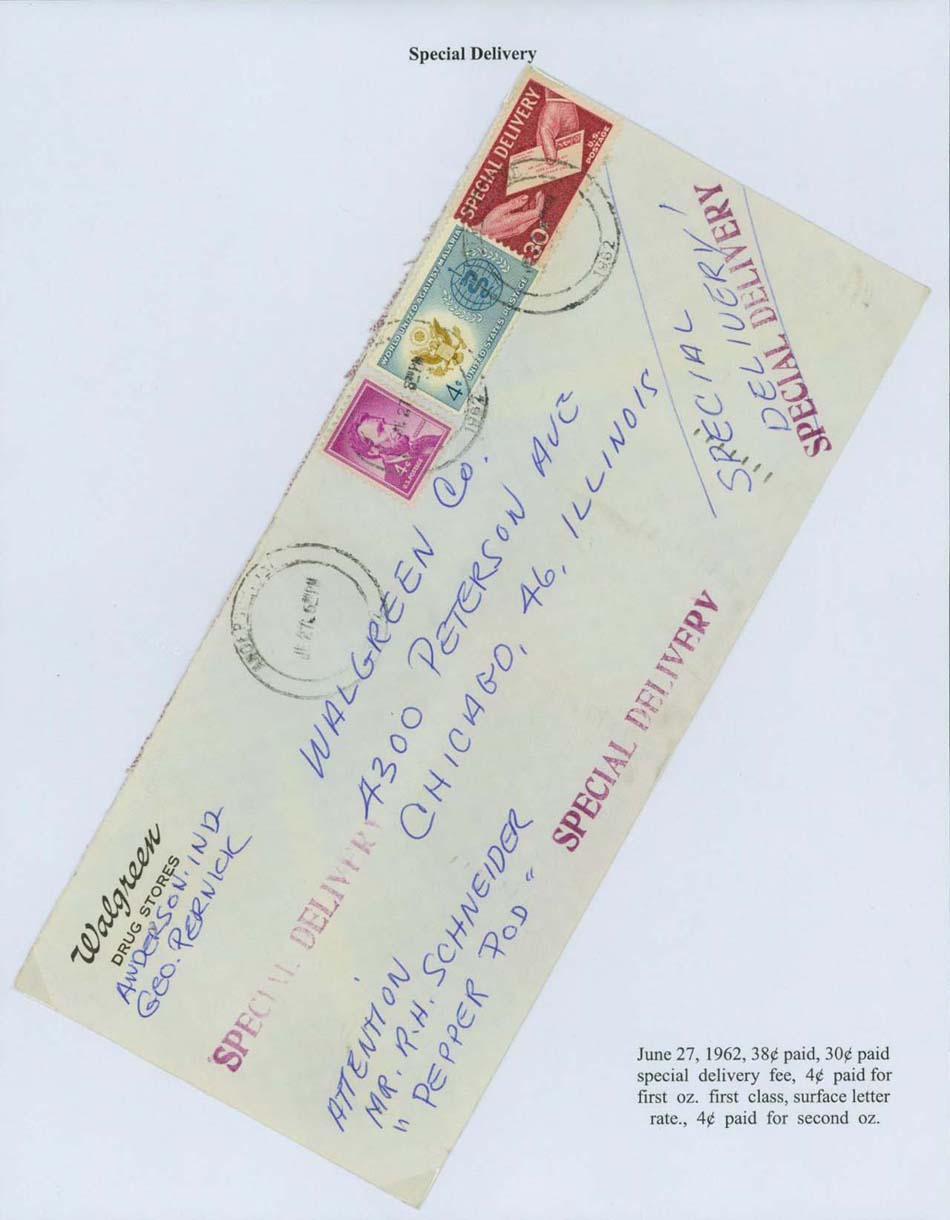 Special Delivery
SPECIAL DELIVERY
U.S. POSTAGE
30¢
WORLD UNITED AGAINST MALARIA
UNITED STATES POSTAGE
4¢
4¢
U.S. POSTAGE
1962
27
PM
1962
27 PM
SPECIAL
DELIVERY!
SPECIAL DELIVERY
Walgreen
DRUG STORES
ANDERSON, IND
GEO. PERNICK
WALGREEN Co.
4300 PETERSON AVE
CHICAGO, 46, ILLINOIS
SPECIAL DELIVERY
SPECIAL DELIVERY
ATTENTION
MR. R.H. SCHNEIDER
"PEPPER POD"
June 27, 1962, 38¢ paid, 30¢ paid
special delivery fee, 4¢ paid for
first oz. first class, surface letter
rate., 4¢ paid for second oz.